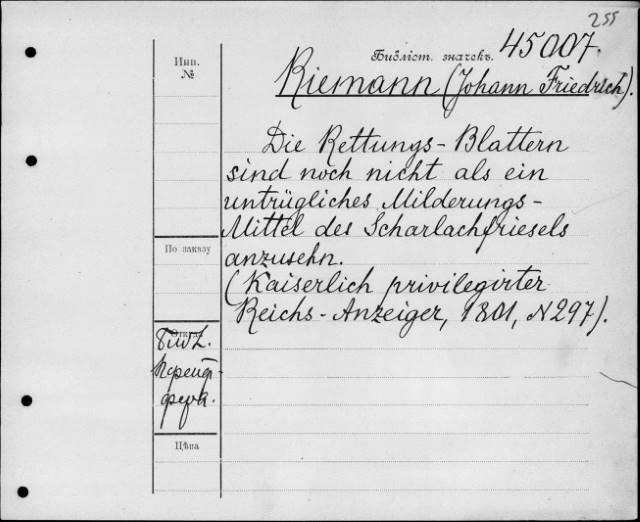 255
Инв. №
Библіот. значекъ. 45007.
Riemann (Johann Friedrich).
Die Rettungs-Blattern
sind noch nicht als ein
untrügliches Milderungs-
Mittel des Scharlachfriesels
anzusehn.
(Kaiserlich privilegirter
Reichs-Anzeiger, 1801, N297).
По заказу
Цѣна